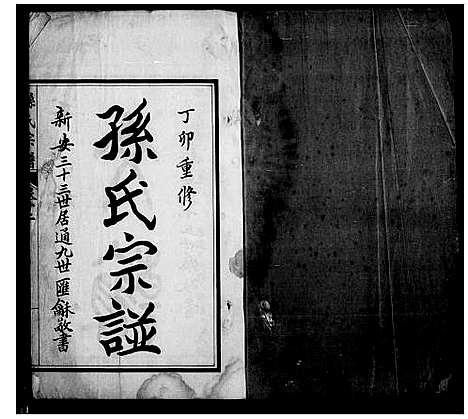 丁卯重修
孫氏宗諩
新安三十三世居通九世匯龢敬書
孫氏宗譜